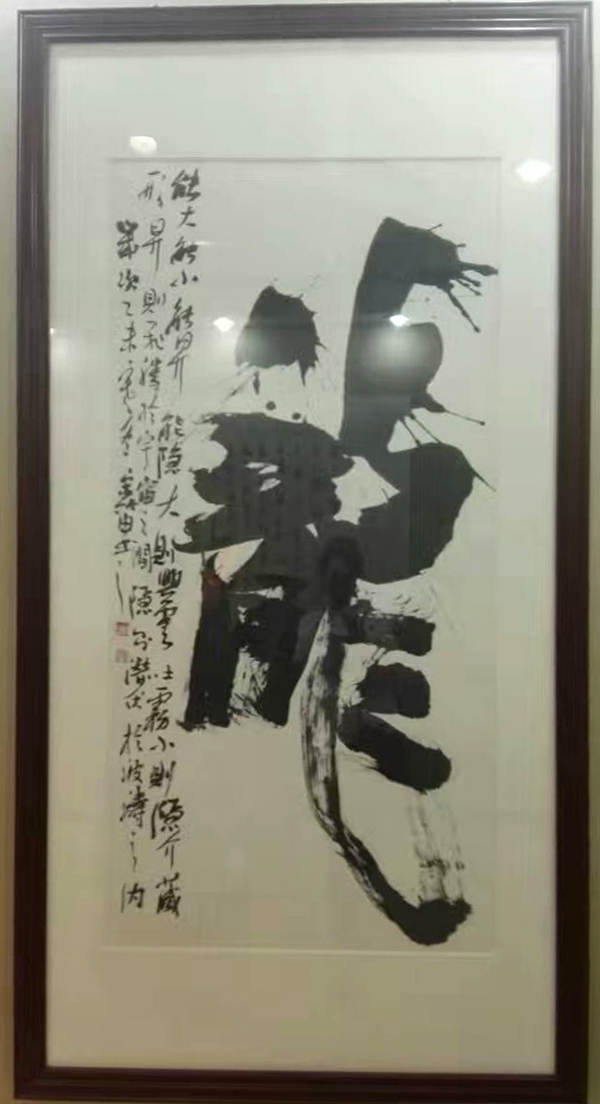 龍
能大能小能昇能隐大則興雲吐霧小則隱介藏
形昇則飛騰於宇宙之間隐則潛伏於波濤之內
歲次乙未